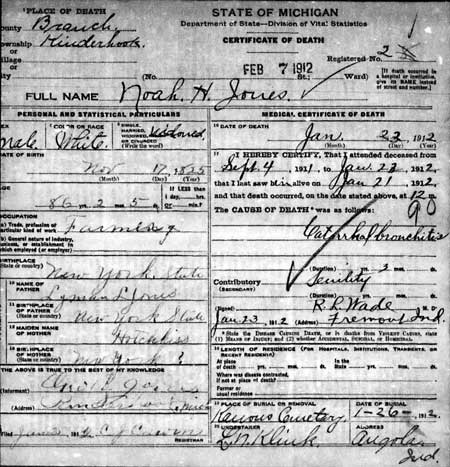 PLACE OF DEATH
STATE OF MICHIGAN
Department of State—Division of Vital Statistics
CERTIFICATE OF DEATH
ounty Branch
ownship Kinderhook
illage
ity
Registered No. 2
FEB 7 1912
(No. St.; Ward)
[If death occurred in a hospital or institution, give its NAME instead of street and number.]
FULL NAME Noah H. Jones
PERSONAL AND STATISTICAL PARTICULARS
MEDICAL CERTIFICATE OF DEATH
EX male
COLOR OR RACE White
SINGLE, MARRIED, WIDOWED, OR DIVORCED (Write the word) Widowed
DATE OF DEATH
Jan. 22, 1912
(Month) (Day) (Year)
DATE OF BIRTH
Nov 17, 1825
(Month) (Day) (Year)
I HEREBY CERTIFY, That I attended deceased from
Sept. 4 1911, to Jan. 22, 1912,
that I last saw him alive on Jan 21 1912,
and that death occurred, on the date stated above, at 12 m.
The CAUSE OF DEATH was as follows:
90
Catarrhal bronchitis
86 yrs. 2 mos. 5 ds.
If LESS than 1 day, hrs. or min.?
OCCUPATION
(a) Trade, profession, or particular kind of work Farming
(b) General nature of industry, business, or establishment in which employed (or employer)
(Duration) yrs. mos. ds.
BIRTHPLACE (State or country) New York State
Contributory (SECONDARY) Senility
(Duration) yrs. mos. ds.
10 NAME OF FATHER Lyman D Jones
(Signed) R. L. Wade
Jan 23, 1912 (Address) Fremont Ind.
11 BIRTHPLACE OF FATHER (State or country) New York State
* State the DISEASE CAUSING DEATH, or in deaths from VIOLENT CAUSES, state (1) MEANS OF INJURY; and (2) whether ACCIDENTAL, SUICIDAL, or HOMICIDAL.
12 MAIDEN NAME OF MOTHER Hotchkiss
13 BIRTHPLACE OF MOTHER (State or country) New York
LENGTH OF RESIDENCE (FOR HOSPITALS, INSTITUTIONS, TRANSIENTS, OR RECENT RESIDENTS)
At place of death yrs. mos. ds. In the State yrs. mos. ds.
Where was disease contracted, if not at place of death?
Former or usual residence
THE ABOVE IS TRUE TO THE BEST OF MY KNOWLEDGE
(Informant)
(Address)
PLACE OF BURIAL OR REMOVAL Cemetery
DATE OF BURIAL 1-26- 1912
Filed 191
REGISTRAR
UNDERTAKER L. N. Klink
ADDRESS Angola Ind.